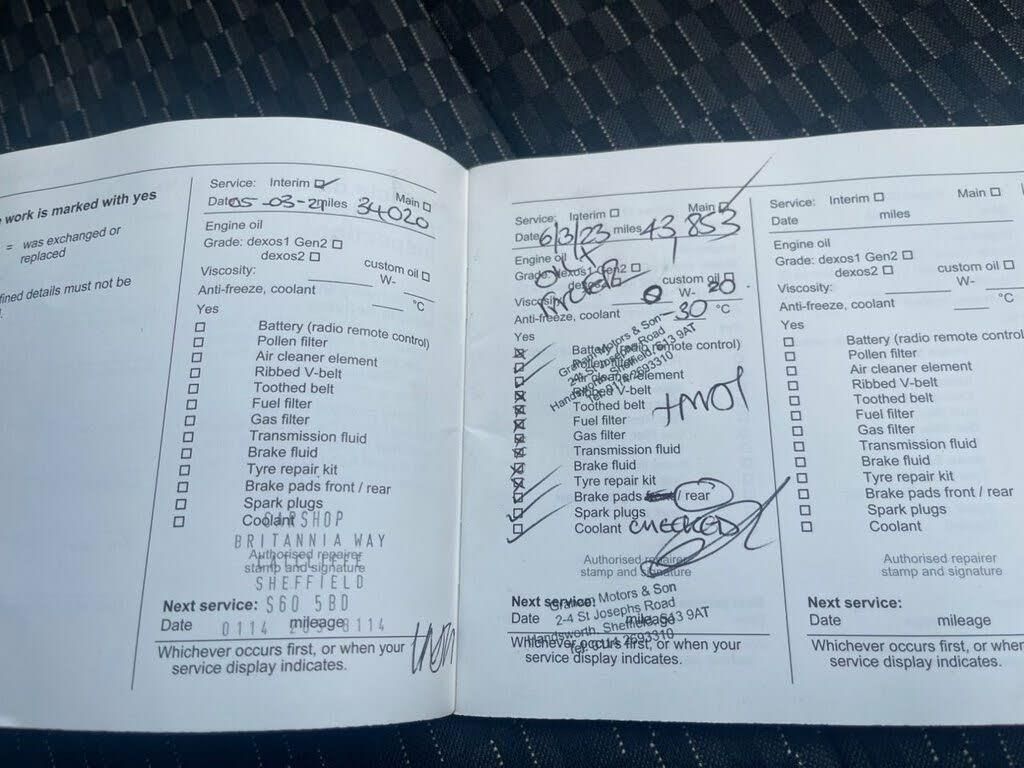 e work is marked with yes
= was exchanged or
replaced
fined details must not be
Service: Interim
Main
Date 05-03-21 miles 34020
Engine oil
Grade: dexos1 Gen2
dexos2
custom oil
Viscosity: W-
Anti-freeze, coolant °C
Yes
Battery (radio remote control)
Pollen filter
Air cleaner element
Ribbed V-belt
Toothed belt
Fuel filter
Gas filter
Transmission fluid
Brake fluid
Tyre repair kit
Brake pads front / rear
Spark plugs
Coolant
CARSHOP
BRITANNIA WAY
Authorised repairer
stamp and signature
SHEFFIELD
Next service: S60 5BD
Date mileage
0114
8114
Whichever occurs first, or when your
service display indicates.
Service: Interim
Main
Date 6/3/23 miles 43,853
Engine oil
Grade: dexos1 Gen2
dexos2
custom oil
Viscosity: 0 W- 20
Anti-freeze, coolant -30 °C
Yes
Battery (radio remote control)
Pollen filter
Air cleaner element
Ribbed V-belt
Graham Motors & Son
2-4 St Josephs Road
Handsworth, Sheffield, S13 9AT
Tel: 0114 2693310
Toothed belt
+MOT
Fuel filter
Gas filter
Transmission fluid
Brake fluid
Tyre repair kit
Brake pads front / rear
Spark plugs
Coolant CHECKED
Authorised repairer
stamp and signature
Next service:
Date mileage
Graham Motors & Son
2-4 St Josephs Road
Handsworth, Sheffield, S13 9AT
Tel: 0114 2693310
Whichever occurs first, or when your
service display indicates.
Service: Interim
Main
Date miles
Engine oil
Grade: dexos1 Gen2
dexos2
custom oil
Viscosity: W-
Anti-freeze, coolant °C
Yes
Battery (radio remote control
Pollen filter
Air cleaner element
Ribbed V-belt
Toothed belt
Fuel filter
Gas filter
Transmission fluid
Brake fluid
Tyre repair kit
Brake pads front / rear
Spark plugs
Coolant
Authorised repairer
stamp and signature
Next service:
Date mileage
Whichever occurs first, or when your
service display indicates.